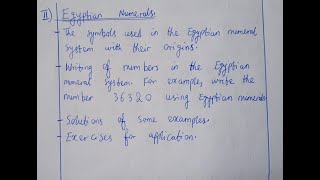 II) Egyptian Numerals:
- The symbols used in the Egyptian numeral
system with their origins.
- Writing of numbers in the Egyptian
numeral system. For example, write the
number 36320 using Egyptian numerals
- Solutions of some examples.
- Exercises for application.